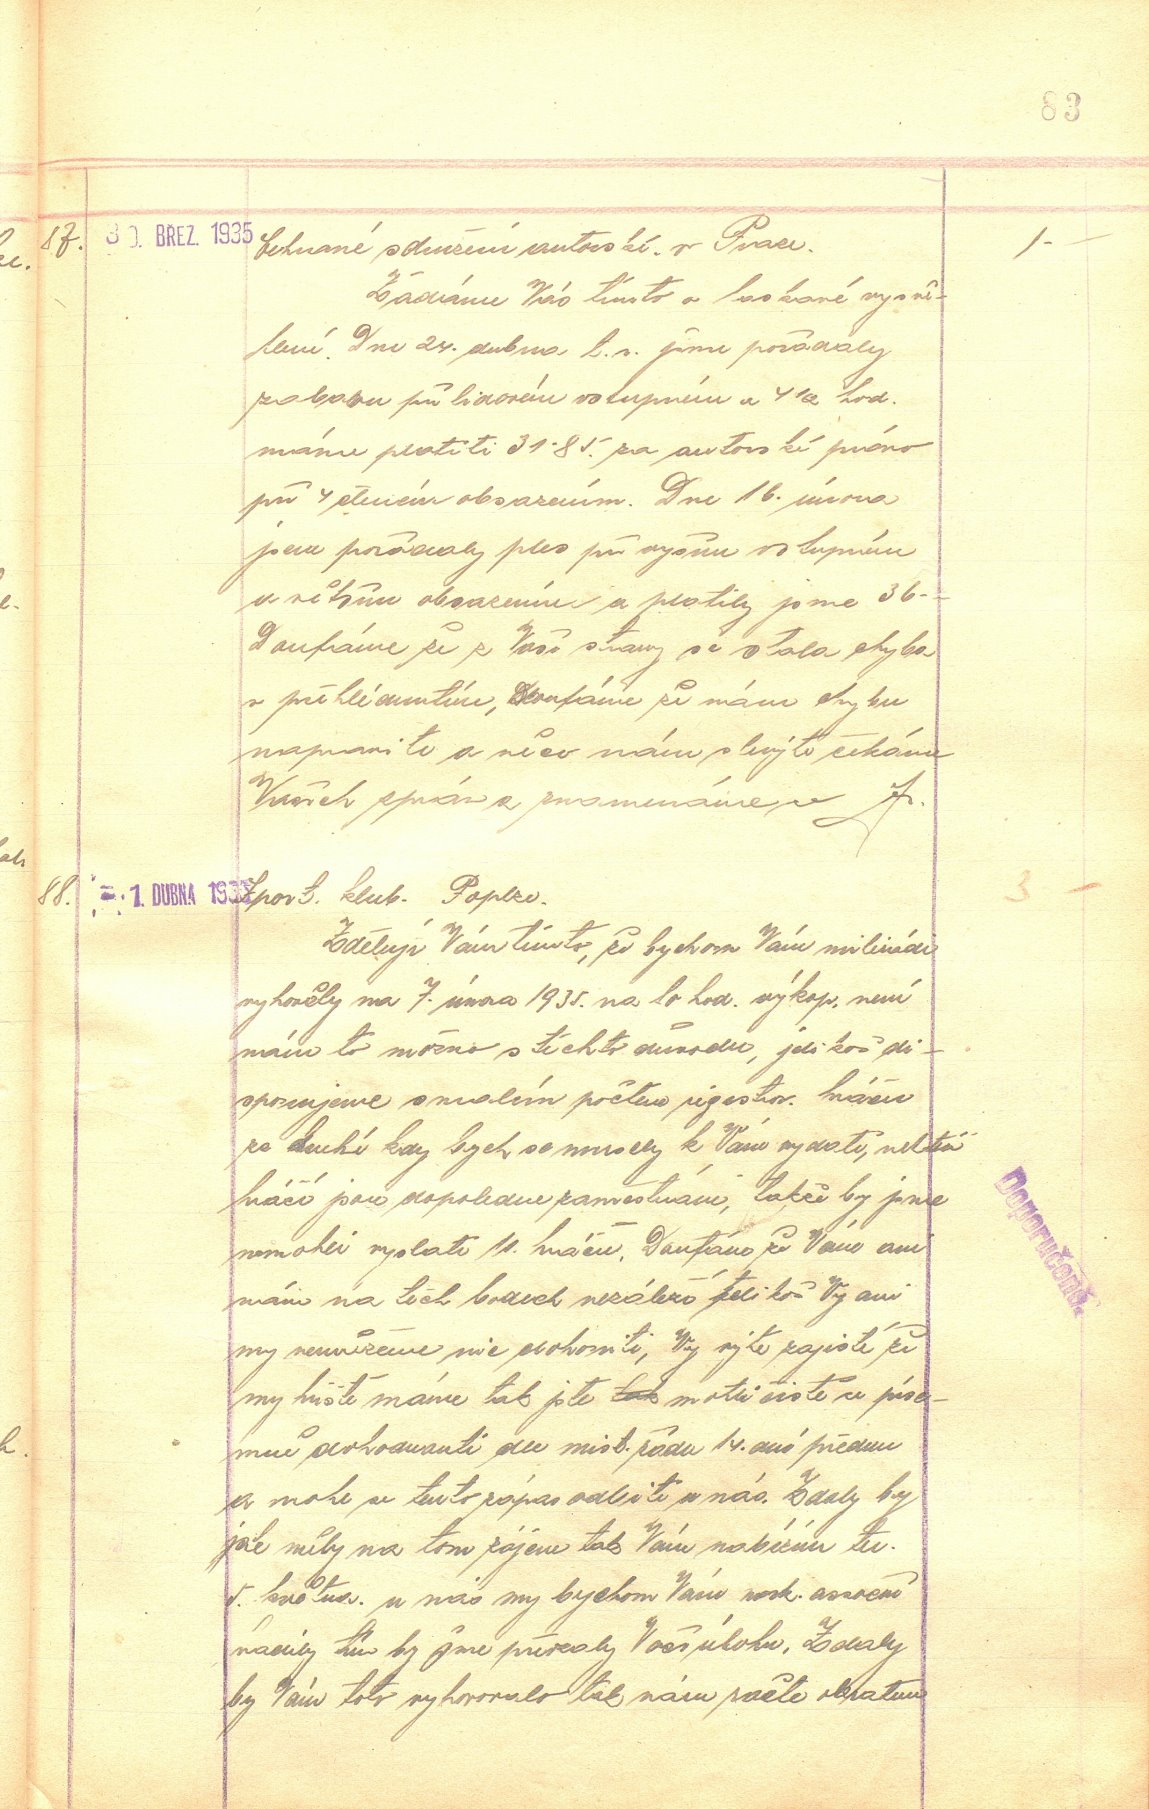 83
87. 30. BŘEZ. 1935 Ochrané sdružení autorské. v Praze. 1-
Žádáme Vás tímto o laskavé vysvě-
tlení. Dne 24. dubna t. r. jsme pořádaly
zabavu při lidovém vstupném a 4 hod.
máme platiti 31·85. za autorské právo
při 4 členém obsazením. Dne 16. února
jsem pořádaly ples při vyším vstupném
a větším obsazením a platily jsme 36--
Doufáme že z Vaší strany se stala chyba
v přehlédnutím, doufáme že nám chybu
napravite a něco nám slevýte čekáme
Vašich zpráv a znamenáme se
88. 1. DUBNA 193 Sport. klub. Poplze. 3 -
Zděluji Vám tímto, že bychom Vám milerádi
vyhověly na 7. února 1935. na 10 hod. výkop. není
nám to možno s těchto důvodu, jelikož di-
sponujeme s malém počtem registr. hráču
za druhé kdy bych se musely k Vám vydati, někteří
hráči jsou dopoledne zaměstnáni, takže by jsme
nemohli vyslati 11. hráčů. Doufám že Vám ani
nám na těch bodech nezáleží jelikož Vy ani
my nemůžeme nic dohoniti, Vy výte zajisté že
my hřiště máme tak jste tak mohli čistě se píse-
mně dohodnouti dle mist. řádu 14. dnů předem
a mohl se tento zápas odbýti u nás. Zdaly by
jste měly na tom zájem tak Vám nabízím ten.
5. května. u nás my bychom Vám
tím by jsme převzaly Vaší úlohu. Zdaly
by Vám toto vyhovovalo tak nám račte obratem
Doporučeně.